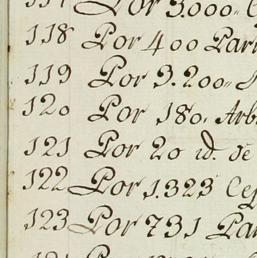 117 Por 3.000
118 Por 400 Pari
119 Por 3.200
120 Por 180. Arb
121 Por 20 id. de
122 Por 1.323 Cep
123 Por 731 Par